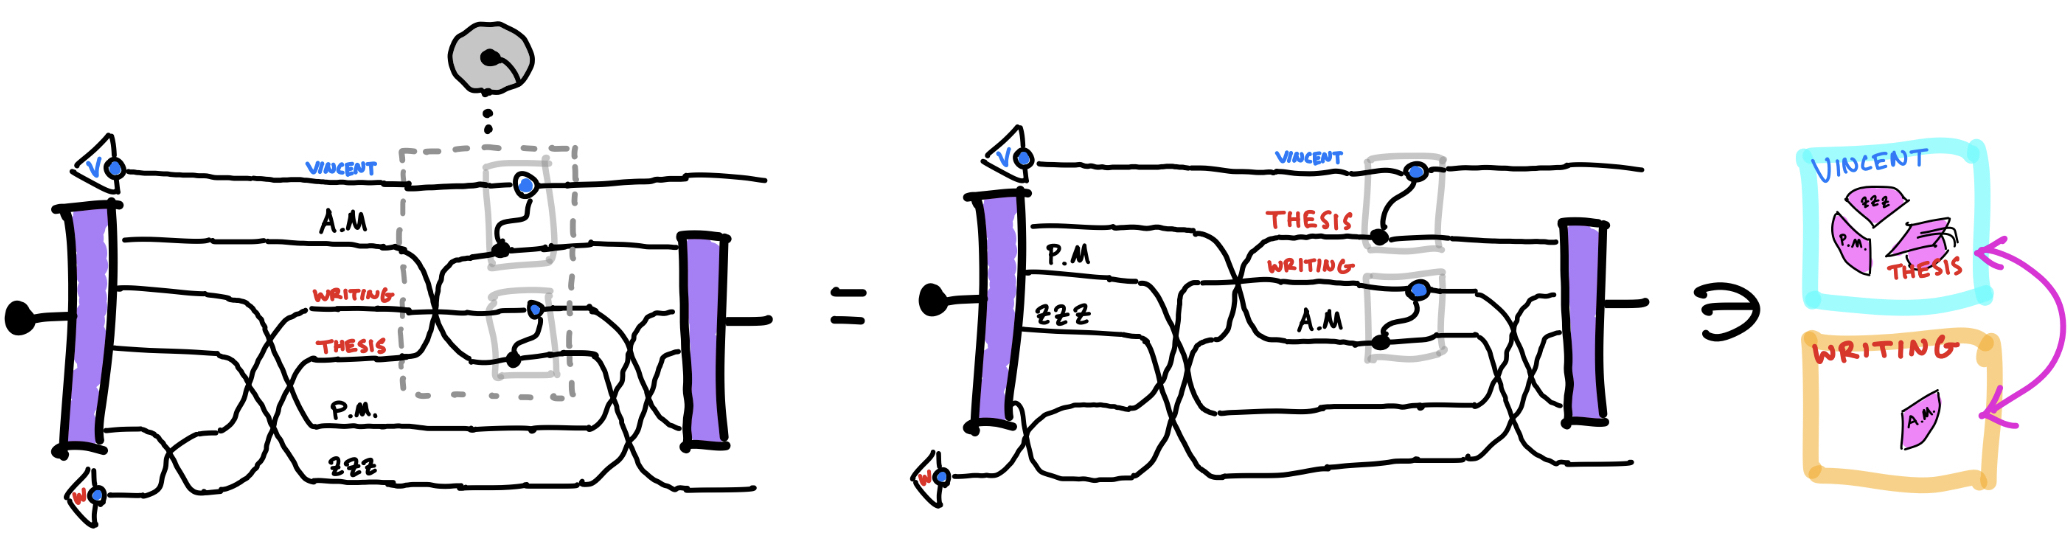 V
VINCENT
A.M
WRITING
THESIS
P.M.
ZZZ
W
=
V
VINCENT
THESIS
P.M
WRITING
ZZZ
A.M
W
VINCENT
ZZZ
P.M.
THESIS
WRITING
A.M.